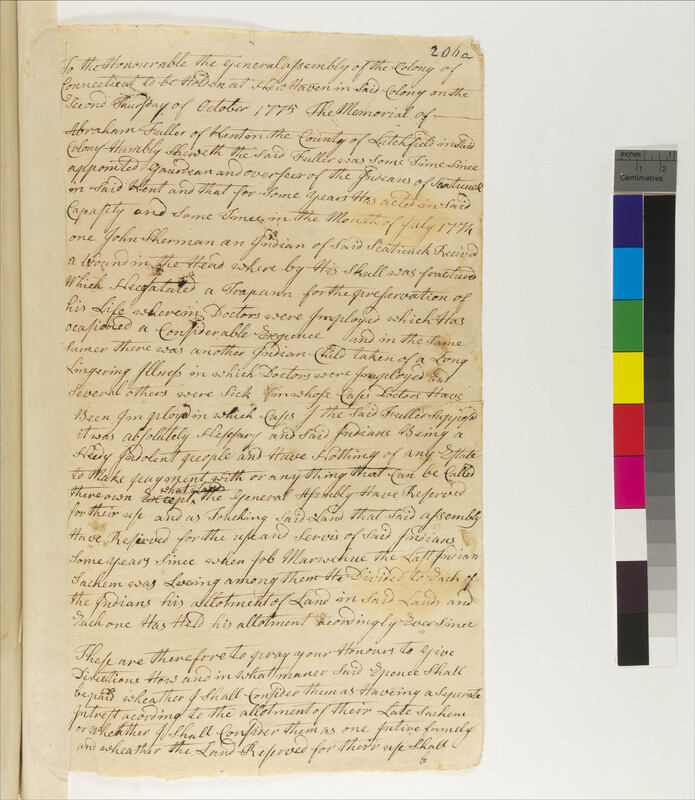 206a
To the Honourable the General assembly of the Colony of
Connecticut to be Holden at New Haven in Said Colony on the
Second Thursday of October 1775 The Memorial of
Abraham Fuller of Kent in the County of Litchfield in Said
Colony Humbly Sheweth the Said Fuller was Some Time Since
appointed Gaurdean and overseer of the Indians of Scaticuck
in Said Kent and that for Some Years Has acted in Said
Capassity and Some Time in the Month of July 1774
one John Sherman an Indian of Said Scaticuck Reeived
a wound in the Head where by His Skull was fractured
Which a Trapann for the preservation of
his Life wherein Doctors were Imployed which Has
ocasioned a Considerable Expence and in the Same
Sumer there was another Indian Child taken of a Long
Lingering Illness in which Doctors were Imployed and
Several others were Sick in whose Cases Doctors Have
Been Imployd in which Cases I the Said Fuller Supposd
it was absolutely Nessary and Said Indians Being a
Needy Indolent people and Have Nothing of any Estate
to Make payment with or anything that Can be Called
there own Except what Land the General Asembly Have Reserved
for their use and as Touching Said Land that Said assembly
Have Reserved for the use and Servis of Said Indians
Some Years Since when Job Marwehue the Last Indian
Sachem was Liveing among them He Divided to Each of
the Indians his allotment of Land in Said Land and
Each one Has Held his allotment acordingly Ever Since
These are therefore to pray your Honours to Give
Directions How and in what maner Said Epence Shall
be paid wheather I Shall Consider them as Haveing a Seperate
Intrest acording to the allotment of their Late Sachem
or Wheather I Shall Consider them as one Intire family
and wheather the Land Reserved for their use Shall
b